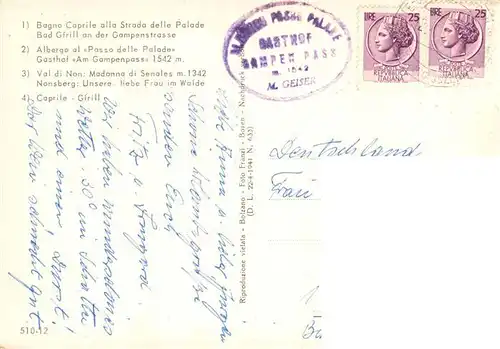 1) Bagno Caprile alla Strada delle Palade
Bad Gfrill an der Gampenstrasse
2) Albergo al «Passo delle Palade»
Gasthof «Am Gampenpass» 1542 m.
3) Val di Non: Madonna di Senales m. 1342
Nonsberg: Unsere liebe Frau im Walde
4) Caprile - Gfrill
510-12
ALBERGO PASSO PALADE
GASTHOF
GAMPEN PASS
m. 1542
M. GEISER
LIRE 25
REPUBBLICA
ITALIANA
LIRE 25
REPUBBLICA
ITALIANA
Riproduzione vietata - Bolzano - Foto Fränzl - Bozen - Nachdruck
(D. L. 22-4-1941 N. 633)
Schöne Urlaubsgrüße
senden Euch
Fritz u.
Wir haben wunderschönes
Wetter, 30° im Schatten
und einen Durst!
Der Wein schmeckt gut
Deutschland
Frau